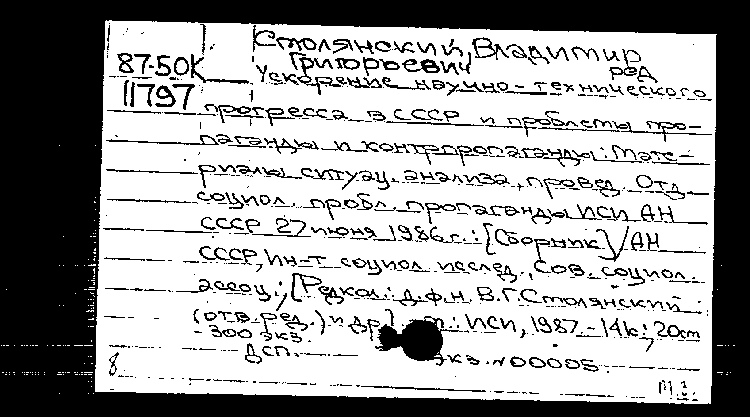 Столянский, Владимир
Григорьевич ред
87-50К
11797
Ускорение научно-технического
прогресса в СССР и проблемы про-
паганды и контрпропаганды: Мате-
риалы ситуац. анализа, провед. Отд.
социол. пробл. пропаганды ИСИ АН
СССР 27 июня 1986 г.: [Сборник] / АН
СССР, Ин-т социол исслед., Сов. социол.
ассоц.; [Редкол.: д.ф.н. В.Г. Столянский
(отв. ред.) и др.] . - М.: ИСИ, 1987. - 14к; 20см
- 300 экз.
ДСП. экз. № 00005.
8